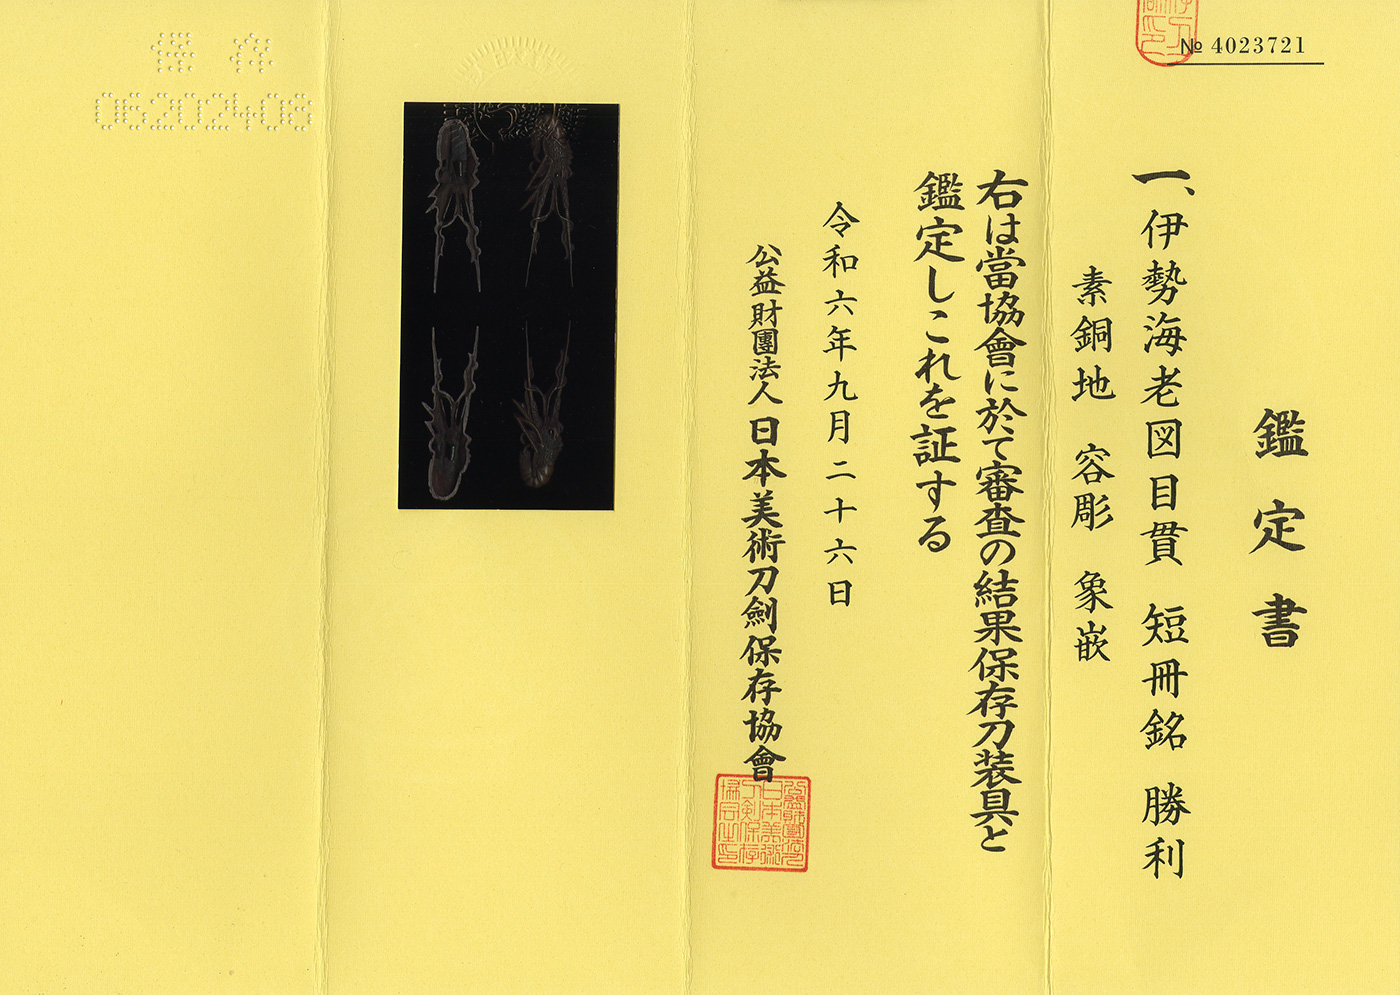 № 4023721
鑑定書
一、伊勢海老図目貫 短冊銘 勝利
素銅地 容彫 象嵌
右は當協會に於て審査の結果保存刀装具と
鑑定しこれを証する
令和六年九月二十六日
公益財團法人 日本美術刀劍保存協會
保存
06202408